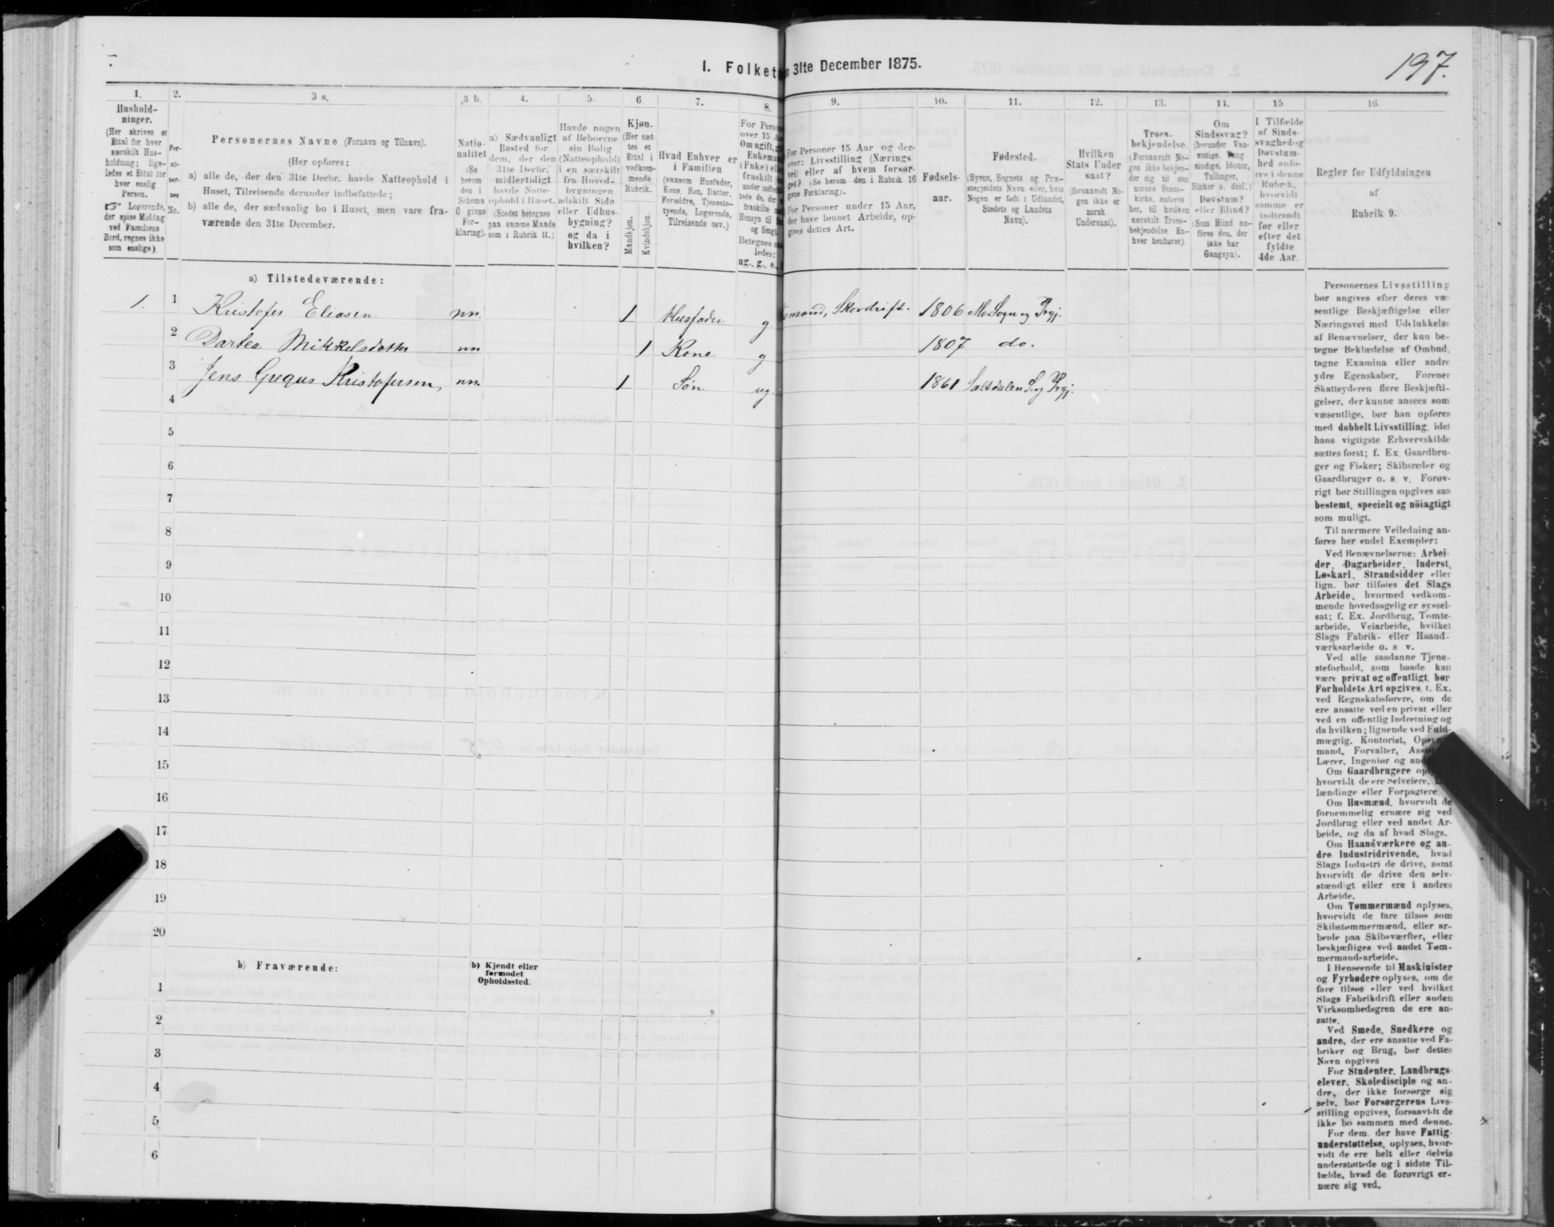 1. Folket
n 31te December 1875.
197.
1.
Hushold-
ninger.
(Her skrives et
Ettal for hver
særskilt Hus-
holdning; lige-
ledes et Ettal for
hver enslig
Person.
☞ Logerende,
der spise Middag
ved Familiens
Bord, regnes ikke
som enslige).
2.
Per-
so-
ner-
nes
No.
3 a.
Personernes Navne (Fornavn og Tilnavn).
(Her opføres:
a) alle de, der den 31te Decbr. havde Natteophold i
Huset, Tilreisende derunder indbefattede;
b) alle de, der sædvanlig bo i Huset, men vare fra-
værende den 31te December.
3 b.
Natio-
nalitet
(Se
herom
den i
Schema
O givne
For-
klaring).
4.
a) Sædvanligt
Bosted for
dem, der den
31te Decbr.
midlertidigt
havde Natte-
ophold i Huset.
(Stedet betegnes
paa samme Maade
som i Rubrik 11.)
5.
Havde nogen
af Beboerne
sin Bolig
(Natteophold)
i en særskilt
fra Hoved-
bygningen
adskilt Side
eller Udhus-
bygning?
og da i
hvilken?
6.
Kjøn.
(Her sæt-
tes et
Ettal i
vedkom-
mende
Rubrik.
Mandkjøn.
Kvindekjøn.
7.
Hvad Enhver er
i Familien
(saasom Husfader,
Kone, Søn, Datter,
Forældre, Tjeneste-
tyende, Logerende,
Tilreisende osv.)
8.
For Perso
over 15 A
Om ugift,
Enkema
(Enke) elle
fraskilt
Betegnes s
ledes:
ug., g., e.,
9.
For Personer 15 Aar og der-
over: Livsstilling (Nærings
vei) eller af hvem forsør-
get? (Se herom den i Rubrik 16
givne Forklaring).
For Personer under 15 Aar,
der have lønnet Arbeide, op-
gives dettes Art.
10.
Fødsels-
aar.
11.
Fødested.
(Byens, Sognets og Præ-
stegjeldets Navn eller, hvis
Nogen er født i Udlandet,
Stedets og Landets
Navn).
12.
Hvilken
Stats Under
saat?
(forsaavidt No-
gen ikke er
norsk
Undersaat).
13.
Troes-
bekjendelse.
(Forsaavidt No-
gen ikke bekjen-
der sig til den
norske Stats-
kirke, anføres
her, til hvilken
særskilt Troes-
bekjendelse En-
hver henhører).
14.
Om
Sindssvag?
(herunder Van-
vittige, Tung
sindige, Idioter,
Tullinger,
Sinker o. desl.)
Døvstum?
eller Blind?
(Som Blind an-
føres den, der
ikke har
Gangsyn).
15
I Tilfælde
af Sinds-
svaghed og
Døvstum-
hed anfø-
res i denne
Rubrik,
hvorvidt
samme er
indtraadt
før eller
efter det
fyldte
4de Aar.
16.
Regler for Udfyldningen
af
Rubrik 9.
a) Tilstedeværende:
1. 1 Kristofer Eliasen nn. 1 Husfader g smand, Skovdrift. 1806 Mo Sogn og Prgj.
2 Dartea Mikkelsdatter nn 1 Kone g 1807 do.
3 Jens Kristofersen, nn. 1 Søn ug. 1861 Saltdalen S. og Prgj.
4
5
6
7
8
9
10
11
12
13
14
15
16
17
18
19
20
b) Fraværende:
b) Kjendt eller
formodet
Opholdssted.
1
2
3
4
5
6
Personernes Livsstilling
bør angives efter deres væ-
sentlige Beskjæftigelse eller
Næringsvei med Udelukkelse
af Benævnelser, der kun be-
tegne Beklædelse af Ombud,
tagne Examina eller andre
ydre Egenskaber. Forener
Skatteyderen flere Beskjæfti-
gelser, der kunne ansees som
væsentlige, bør han opføres
med dobbelt Livsstilling, idet
hans vigtigste Erhvervskilde
sættes først; f. Ex. Gaardbru-
ger og Fisker; Skibsreder og
Gaardbruger o. s. v. Forøv-
rigt bør Stillingen opgives saa
bestemt, specielt og nöiagtigt
som muligt.
Til nærmere Veiledning an-
føres her endel Exempler:
Ved Benævnelserne: Arbei-
der, Dagarbeider, Inderst,
Løskarl, Strandsidder eller
lign. bør tilføies det Slags
Arbeide, hvormed vedkom-
mende hovedsagelig er syssel-
sat; f. Ex. Jordbrug, Tomte-
arbeide, Veiarbeide, hvilket
Slags Fabrik- eller Haand-
værksarbeide o. s v.
Ved alle saadanne Tjene-
steforhold, som baade kan
være privat og offentligt, bør
Forholdets Art opgives, f. Ex.
ved Regnskabsførere, om de
ere ansatte ved en privat eller
ved en offentlig Indretning og
da hvilken; lignende ved Fuld-
mægtig, Kontorist, Opsyns-
mand, Forvalter, Ass
Lærer, Ingeniør og an
Om Gaardbrugere op
hvorvidt de ere Selveiere,
lændinge eller Forpagtere.
Om Husmænd, hvorvidt de
fornemmelig ernære sig ved
Jordbrug eller ved andet Ar-
beide, og da af hvad Slags.
Om Haandværkere og an-
dre Industridrivende, hvad
Slags Industri de drive, samt
hvorvidt de drive den selv-
stændigt eller ere i andres
Arbeide.
Om Tømmermænd oplyses,
hvorvidt de fare tilsøs som
Skibstømmermænd, eller ar-
beide paa Skibsværfter, eller
beskjæftiges ved andet Tøm-
mermandsarbeide.
I Henseende til Maskinister
og Fyrbødere oplyses, om de
fare tilsøs eller ved hvilket
Slags Fabrikdrift eller anden
Virksomhedsgren de ere an-
satte.
Ved Smede, Snedkere og
andre, der ere ansatte ved Fa-
briker og Brug, bør dettes
Navn opgives
For Studenter, Landbrugs-
elever, Skoledisciple og an-
dre, der ikke forsørge sig
selv, bør Forsørgerens Livs-
stilling opgives, forsaavidt de
ikke bo sammen med denne.
For dem, der have Fattig-
understøttelse, oplyses, hvor-
vidt de ere helt eller delvis
understøttede og i sidste Til-
fælde, hvad de forøvrigt er-
nære sig ved.